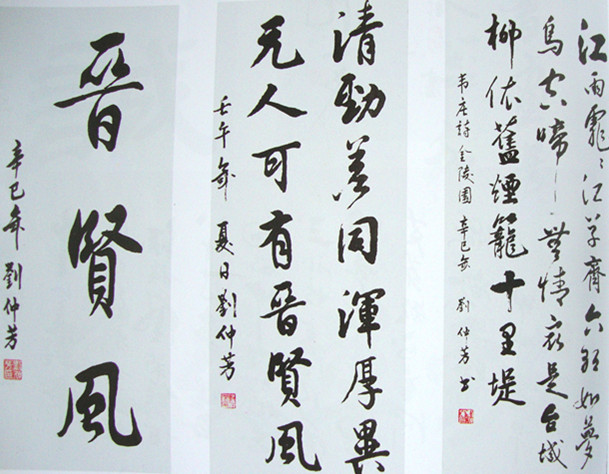 江雨霏〻江草齊六朝如夢
鳥空啼無情最是台城
柳依舊煙籠十里堤
韋庄詩金陵圖 辛巳年 劉仲芳書
清勁差同渾厚異
无人可有晋賢風
壬午年夏日劉仲芳
晋賢風
辛巳年劉仲芳